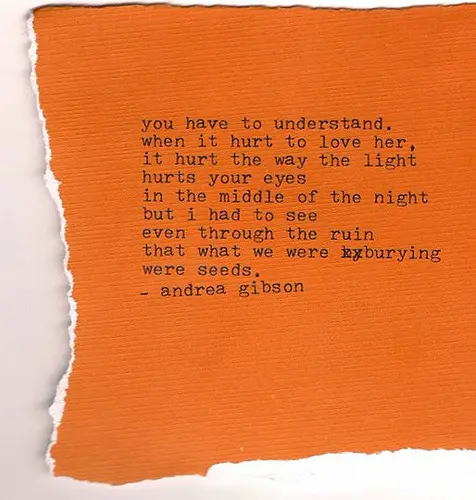 you have to understand.
when it hurt to love her,
it hurt the way the light
hurts your eyes
in the middle of the night
but i had to see
even through the ruin
that what we were burying
were seeds.
- andrea gibson